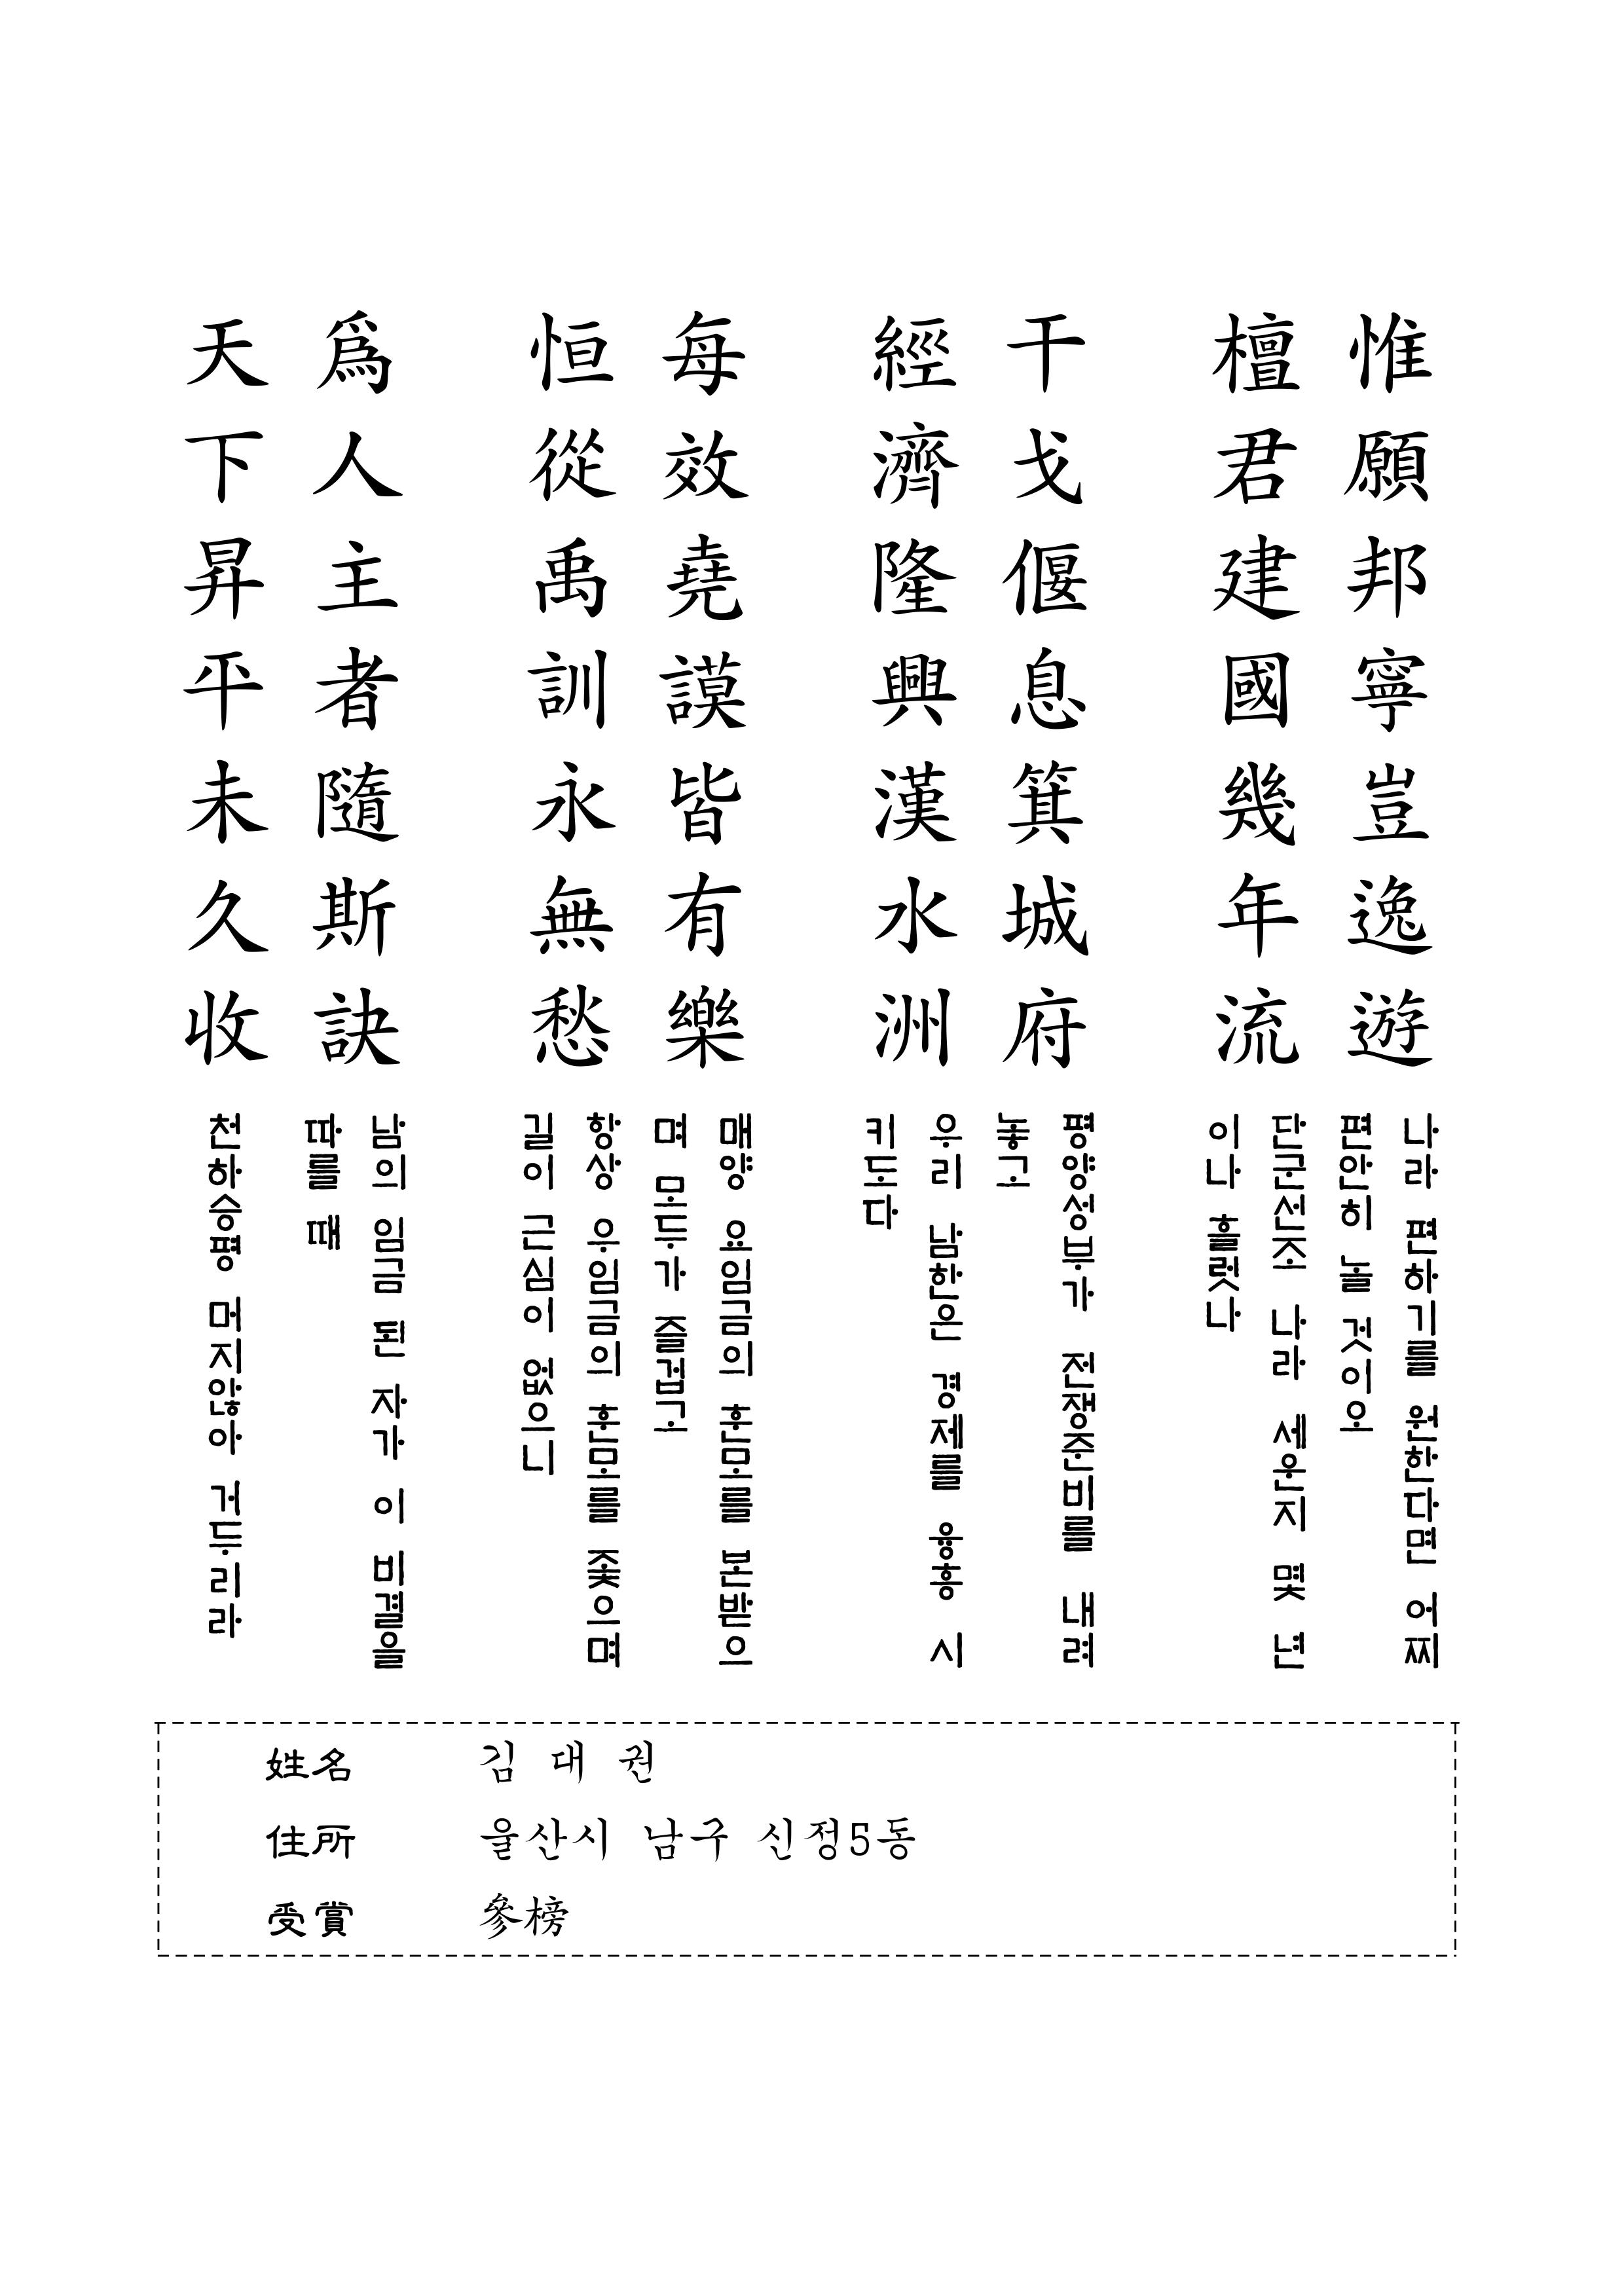 惟願邦寧豈逸遊
檀君建國幾年流
干戈偃息箕城府
經濟隆興漢水洲
每效堯謨皆有樂
恒從禹訓永無愁
爲人主者隨斯訣
天下昇平未久收
나라 편하기를 원한다면 어찌
편안히 놀 것이오
단군선조 나라 세운지 몇 년
이나 흘렀나
평양성부가 전쟁준비를 내려
놓고
우리 남한은 경제를 융흥 시
키도다
매양 요임금의 훈모를 본받으
며 모두가 즐겁고
항상 우임금의 훈모를 좇으며
길이 근심이 없으니
남의 임금 된 자가 이 비결을
따를 때
천하승평 머지않아 거두리라
姓名 김 대 권
住所 울산시 남구 신정5동
受賞 參榜